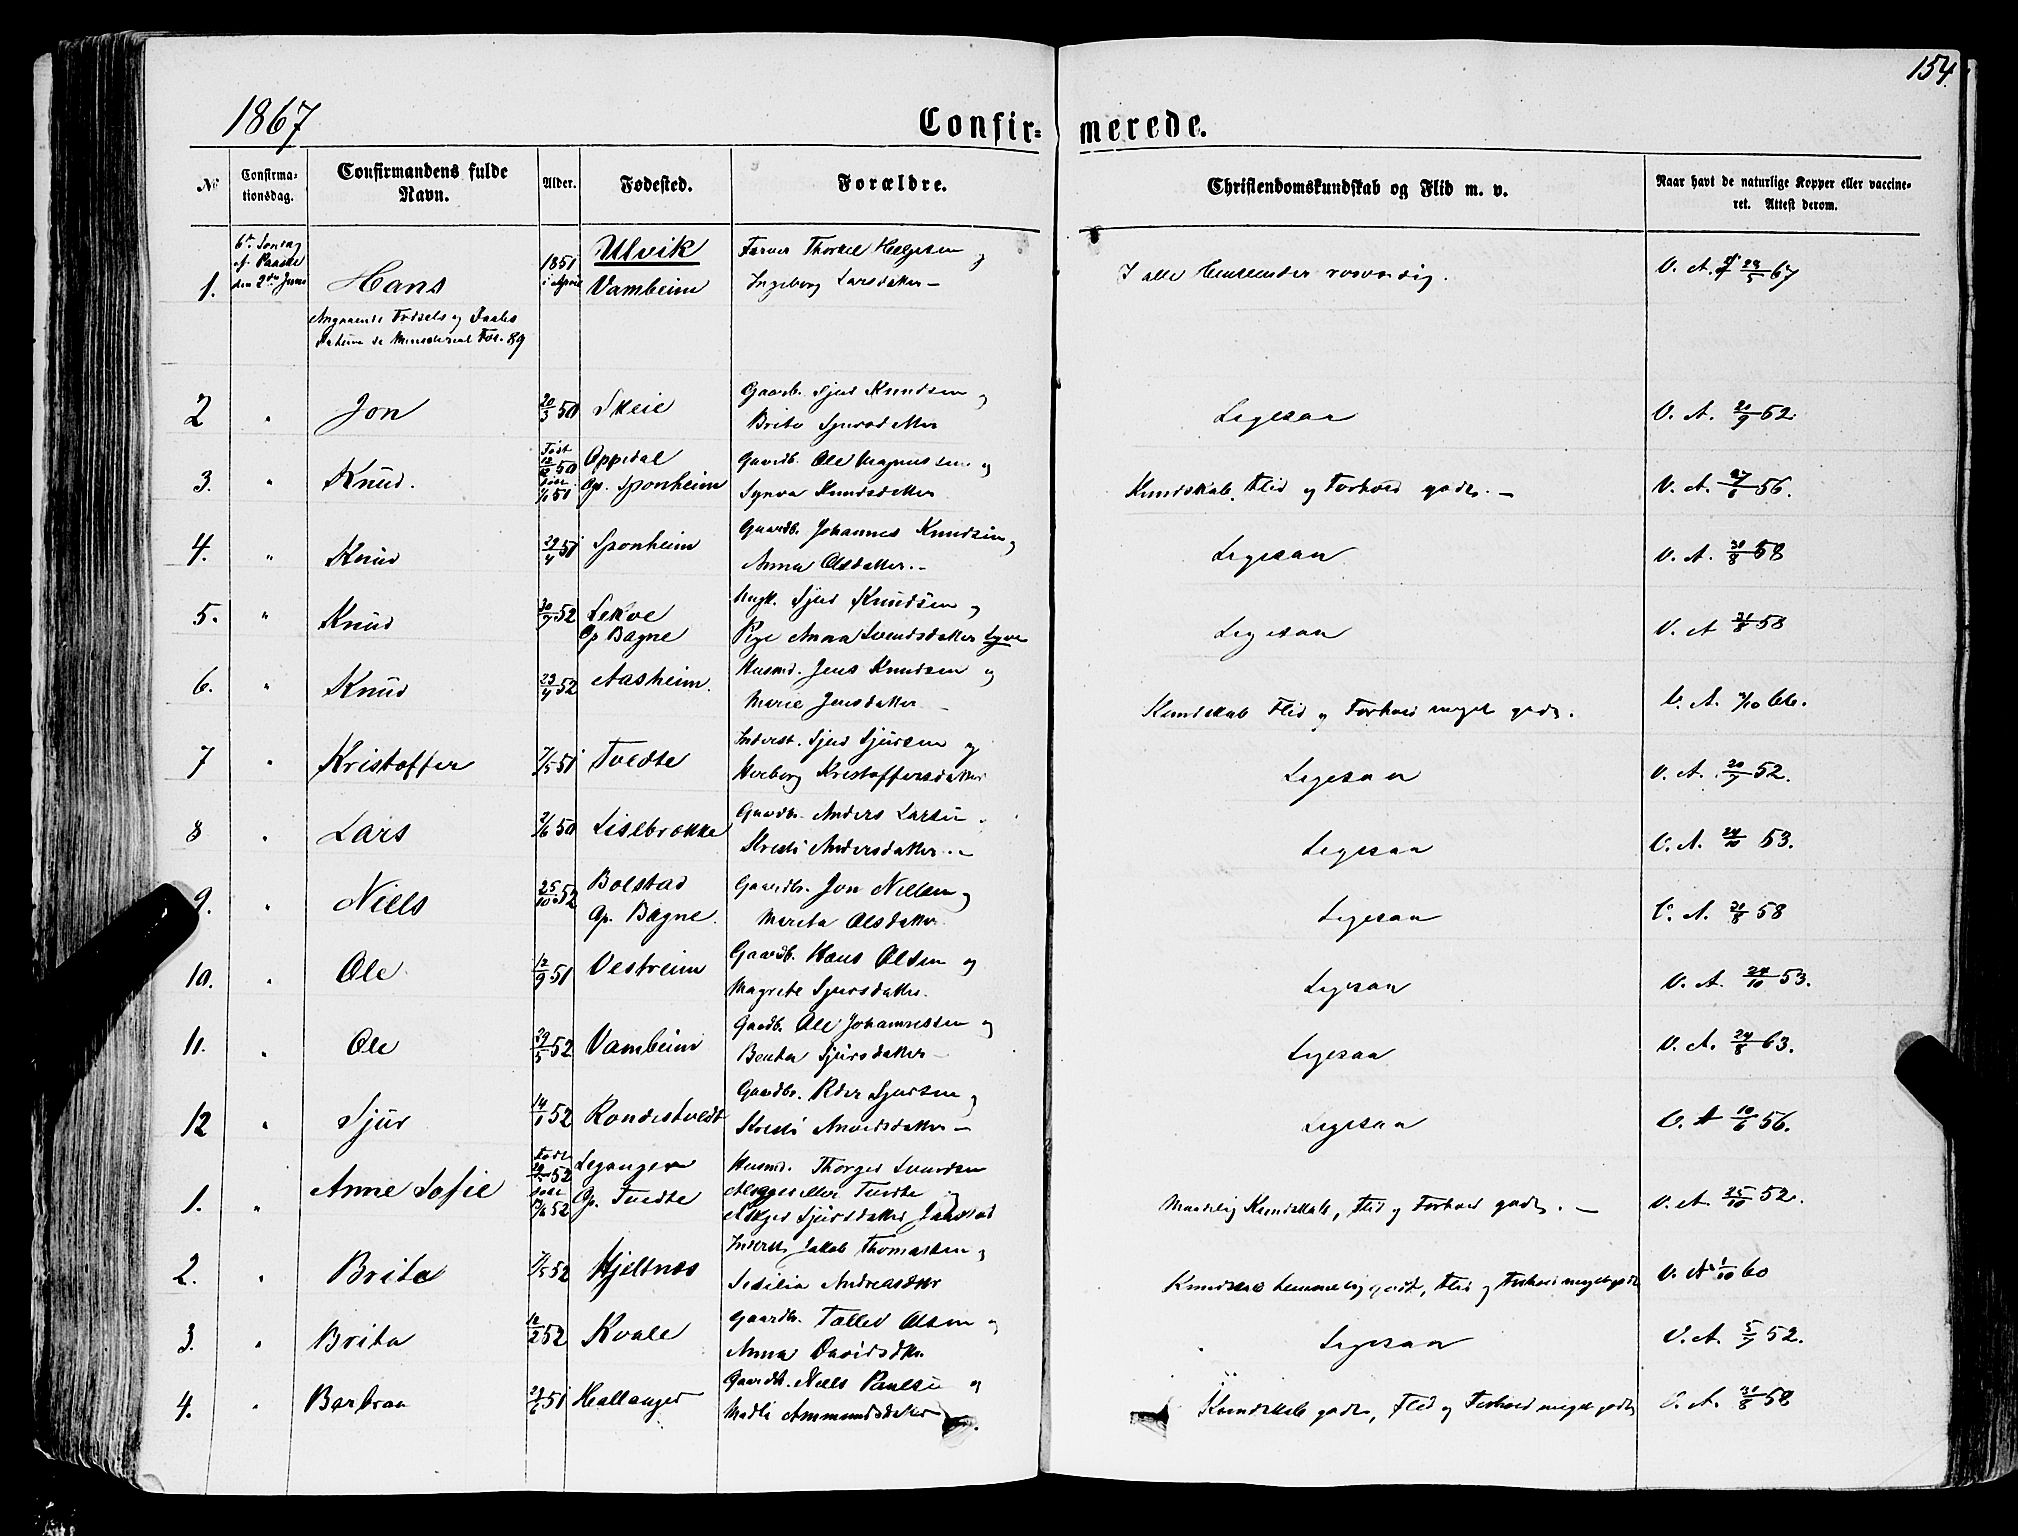 154
1867
Confir= merede.
№
Confirma=
tionsdag.
Confirmandens fulde
Navn.
Alder.
Fødested.
Forældre.
Christendomskundskab og Flid m. v.
Naar havt de naturlige Kopper eller vaccine=
ret. Attest derom.
1. 6te Søndag
e. Paaske
den 2den Juni
Hans
Angaaende Fødsels og Daabs
Fol. 89
1851
i April
Ulvik
Vambheim
Farver Thorkel Helgesen og
Ingeborg Larsdatter -
I alle Henseender rosværdig.
V. A. 29/5 67
2 " Jon 20/3 50 Skeie
Gaardb. Sjur Knudsen og
Brita Sjursdatter
Ligesaa
V. A. 21/9 52.
3. " Knud.
Født
50
51
Oppedal
Op. Sponheim
Gaardb. Ole Magnussen og
Synva Knudsdatter
Kundskab, Flid og Forhold gode. -
V. A. 27/6 56.
4. " Knud 29/4 51 Sponheim
Gaardb. Johannes Knudsen og
Anna Olsdatter. -
Ligesaa
V. A. 31/8 58
5. " Knud 30/7 52
Lekve
Op Bagne
Ungk. Sjur Knudsen og
Pige Anna Svendsdatter Syve
Ligesaa
V. A 31/8 58
6. " Knud 23/4 52 Aasheim.
Husmd. Jens Knudsen og
Marie Jensdatter -
Kundskab Flid og Forhold meget gode.
V. A. 2/10 66.
7 " Kristoffer 7/5 51 Tvedte
Inderst. Sjur Sjursen og
Herborg Kristoffersdatter
Ligesaa
V. A. 20/9 52.
8 " Lars 2/6 50 Lislebrække
Gaardbr. Anders Larsen
Kristi Andersdatter. -
Ligesaa
V. A. 24/10 53.
9. " Niels 25/10 52
Bolstad
Op. Bagne.
Gaardbr. Jon Nielsen og
Marita Olsdatter.
Ligesaa
V. A. 31/8 58
10. " Ole 12/9 51 Vestreim
Gaardb. Hans Olsen og
Magrete Sjursdatter.
Ligesaa
V. A. 24/10 53.
11. " Ole 29/5 52 Vambheim
Gaardb. Ole Johannessen og
Sjursdatter -
Ligesaa
V. A. 24/8 63.
12 " Sjur 14/1 52 Rondestvedt
Gaardbr. Peder Sjursen og
Kristi Arvedsdatter -
Ligesaa
V. A 10/6 56.
1. " Anne Sofie
Født
52
52
Leganger
Op. Tvedte
Husmd. Thorger Svendsen
Tvedte og
Sjursdatter
Maadelig Kundskab, Flid og Forhold gode. -
V. A. 25/10 52.
2. " Brita 7/5 52 Hjeltnæs
Inderst. Jakob Thomassen og
Sesilia Andreasdtr
Kundskab temmelig godt, Flid og Forhold meget gode
V. A. 1/10 60
3. " Brita 16/2 52 Kvale
Gaardbr. Tollev Olsen og
Anna Davidsdtr.
Ligesaa
V. A. 5/9 52.
4. " Barbraa 29/6 51 Hallanger
Gaardb. Niels Paulsen og
Madli Ammundsdatter
Kundskab gode, Flid og Forhold meget gode
V. A. 31/8 58